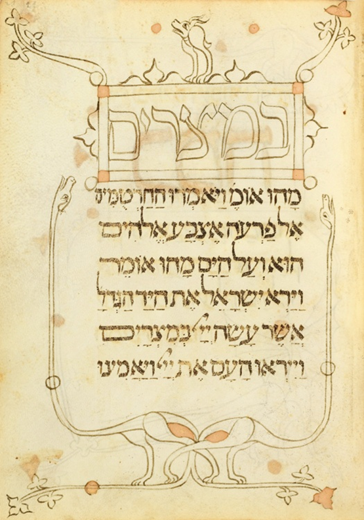 במצרים
מהו אומ' ויאמרו החרטמים
אל פרעה אצבע אלהים
הוא ועל הים מהו אומר
וירא ישראל את היד הגדלה
אשר עשה יי' במצרים
וייראו העם את יי' ויאמינו